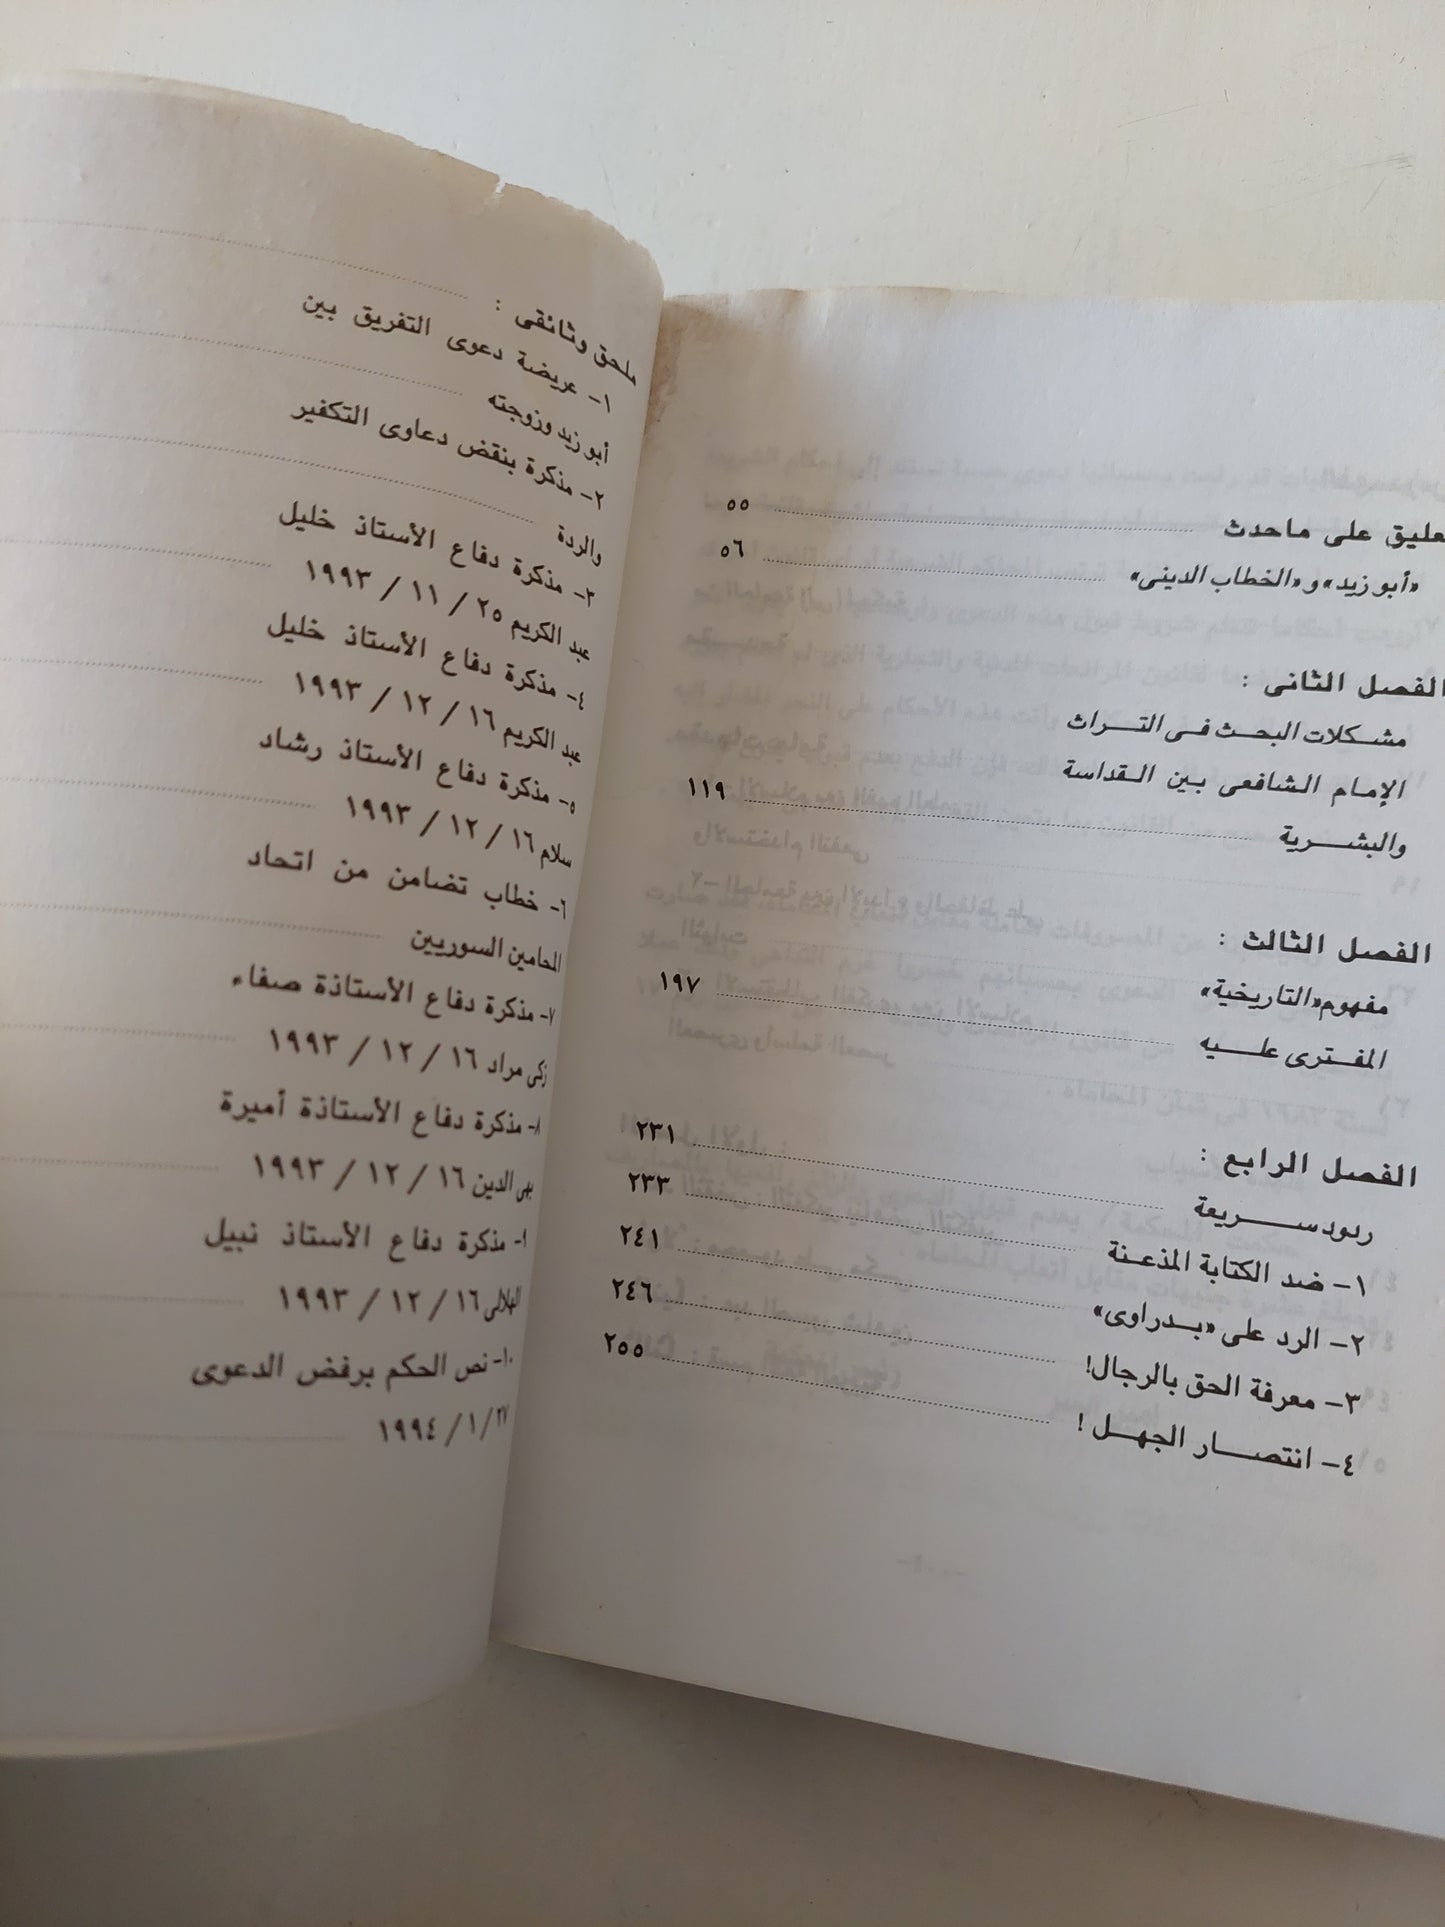 تعليق على ماحدث ٥٥
«أبو زيد» و «الخطاب الدينى» ٥٦
الفصل الثانى :
مشكلات البحث فى التراث
الإمام الشافعى بين القداسة
والبشرية ١١٩
الفصل الثالث :
مفهوم «التاريخية»
المفترى عليه ١٩٧
الفصل الرابع :
ردود سريعة ٢٣١
١- ضد الكتابة المذعنة ٢٣٣
٢- الرد على «بدراوى» ٢٤١
٣- معرفة الحق بالرجال! ٢٤٦
٤- انتصار الجهل ! ٢٥٥
ملحق وثائقى :
١- عريضة دعوى التفريق بين
أبو زيد وزوجته
٢- مذكرة بنقض دعاوى التكفير
والردة
٣- مذكرة دفاع الأستاذ خليل
عبد الكريم ٢٥ / ١١ / ١٩٩٣
٤- مذكرة دفاع الأستاذ خليل
عبد الكريم ١٦ / ١٢ / ١٩٩٣
٥- مذكرة دفاع الأستاذ رشاد
سلام ١٦ / ١٢ / ١٩٩٣
٦- خطاب تضامن من اتحاد
المحامين السوريين
٧- مذكرة دفاع الأستاذة صفاء
زكى مراد ١٦ / ١٢ / ١٩٩٣
٨- مذكرة دفاع الأستاذة أميرة
بهى الدين ١٦ / ١٢ / ١٩٩٣
٩- مذكرة دفاع الأستاذ نبيل
الهلالى ١٦ / ١٢ / ١٩٩٣
١٠- نص الحكم برفض الدعوى
٢٧ / ١ / ١٩٩٤